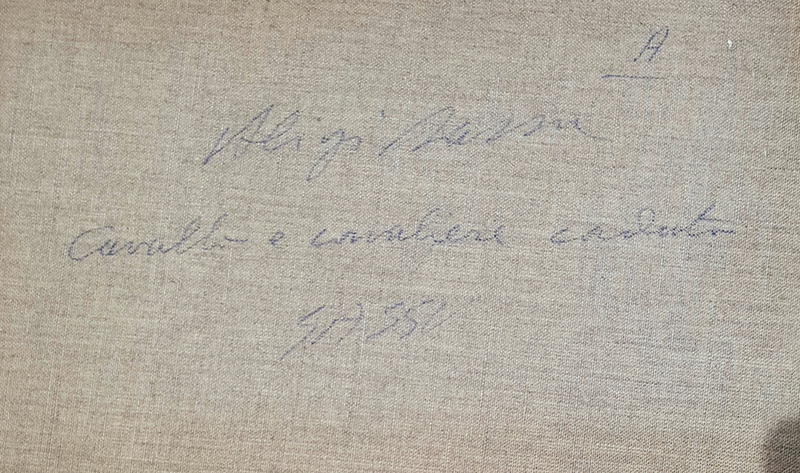 A
Aligi Sassu
Cavallo e cavaliere caduto